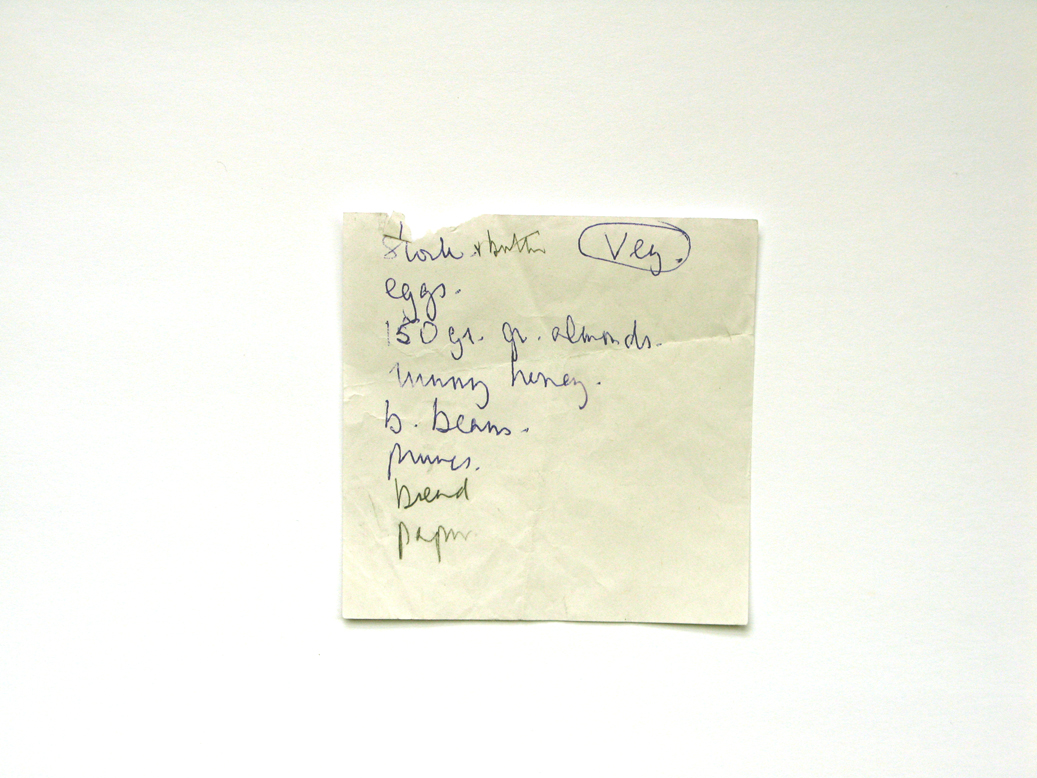 Stork + butter Veg.
eggs.
150 gr. gr. almonds.
runny honey.
b. beans.
prunes.
bread
paper